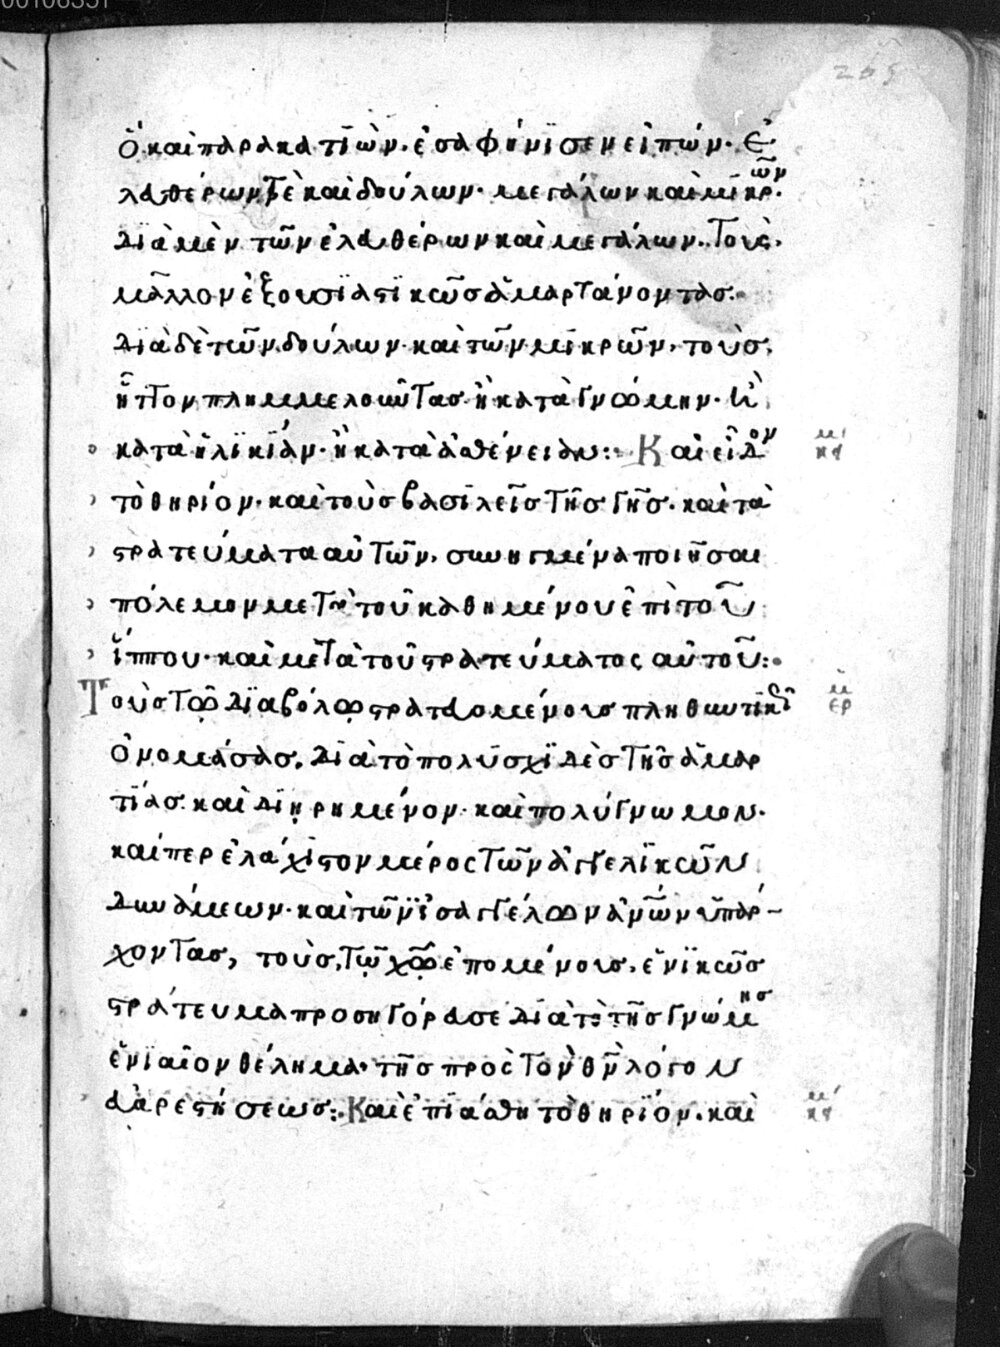 00108351
205
ὃ καὶ παρακατιὼν ἐσαφήνισεν εἰπών· ἐ
λευθέρων τὲ καὶ δούλων· μεγάλων καὶ μικρῶν·
διὰ μὲν τῶν ἐλευθέρων καὶ μεγάλων· τοὺς
μᾶλλον ἐξουσιαστικῶς ἁμαρτάνοντας·
διὰ δὲ τῶν δούλων· καὶ τῶν μικρῶν, τοὺς
ἧττον πλημμελοῦντας ἢ κατὰ γνώμην· ἢ
κατὰ ἡλικίαν· ἢ κατὰ ἀσθένειαν:· Καὶ εἶδον
τὸ θηρίον· καὶ τοὺς βασιλεῖς τῆς γῆς· καὶ τὰ
στρατεύματα αὐτῶν, συνηγμένα ποιῆσαι
πόλεμον μετὰ τοῦ καθημένου ἐπὶ τοῦ
ἵππου· καὶ μετὰ τοῦ στρατεύματος αὐτοῦ:·
Τοὺς τῶ διαβόλω στρατευομένους πληθυντικῶς
ὀνομάσας, διὰ τὸ πολυσχιδὲς τῆς ἁμαρ
τίας· καὶ διῃρημένον· καὶ πολύγνωμον·
καίπερ ἐλάχιστον μέρος τῶν ἀγγελικῶν
δυνάμεων· καὶ τῶν ἰσαγγέλων ἀνῶν ὑπάρ-
χοντας, τοὺς τῷ χῷ ἑπομένους, ἑνικῶς
στράτευμα προσηγόρασε διὰ τὸ τῆς γνώμης
ἑνιαῖον θέλημα· τῆς πρὸς τὸν θν λόγον
εὐαρεστήσεως:· Καὶ ἐπιάσθη τὸ θηρίον· καὶ
κει
ερ
κει